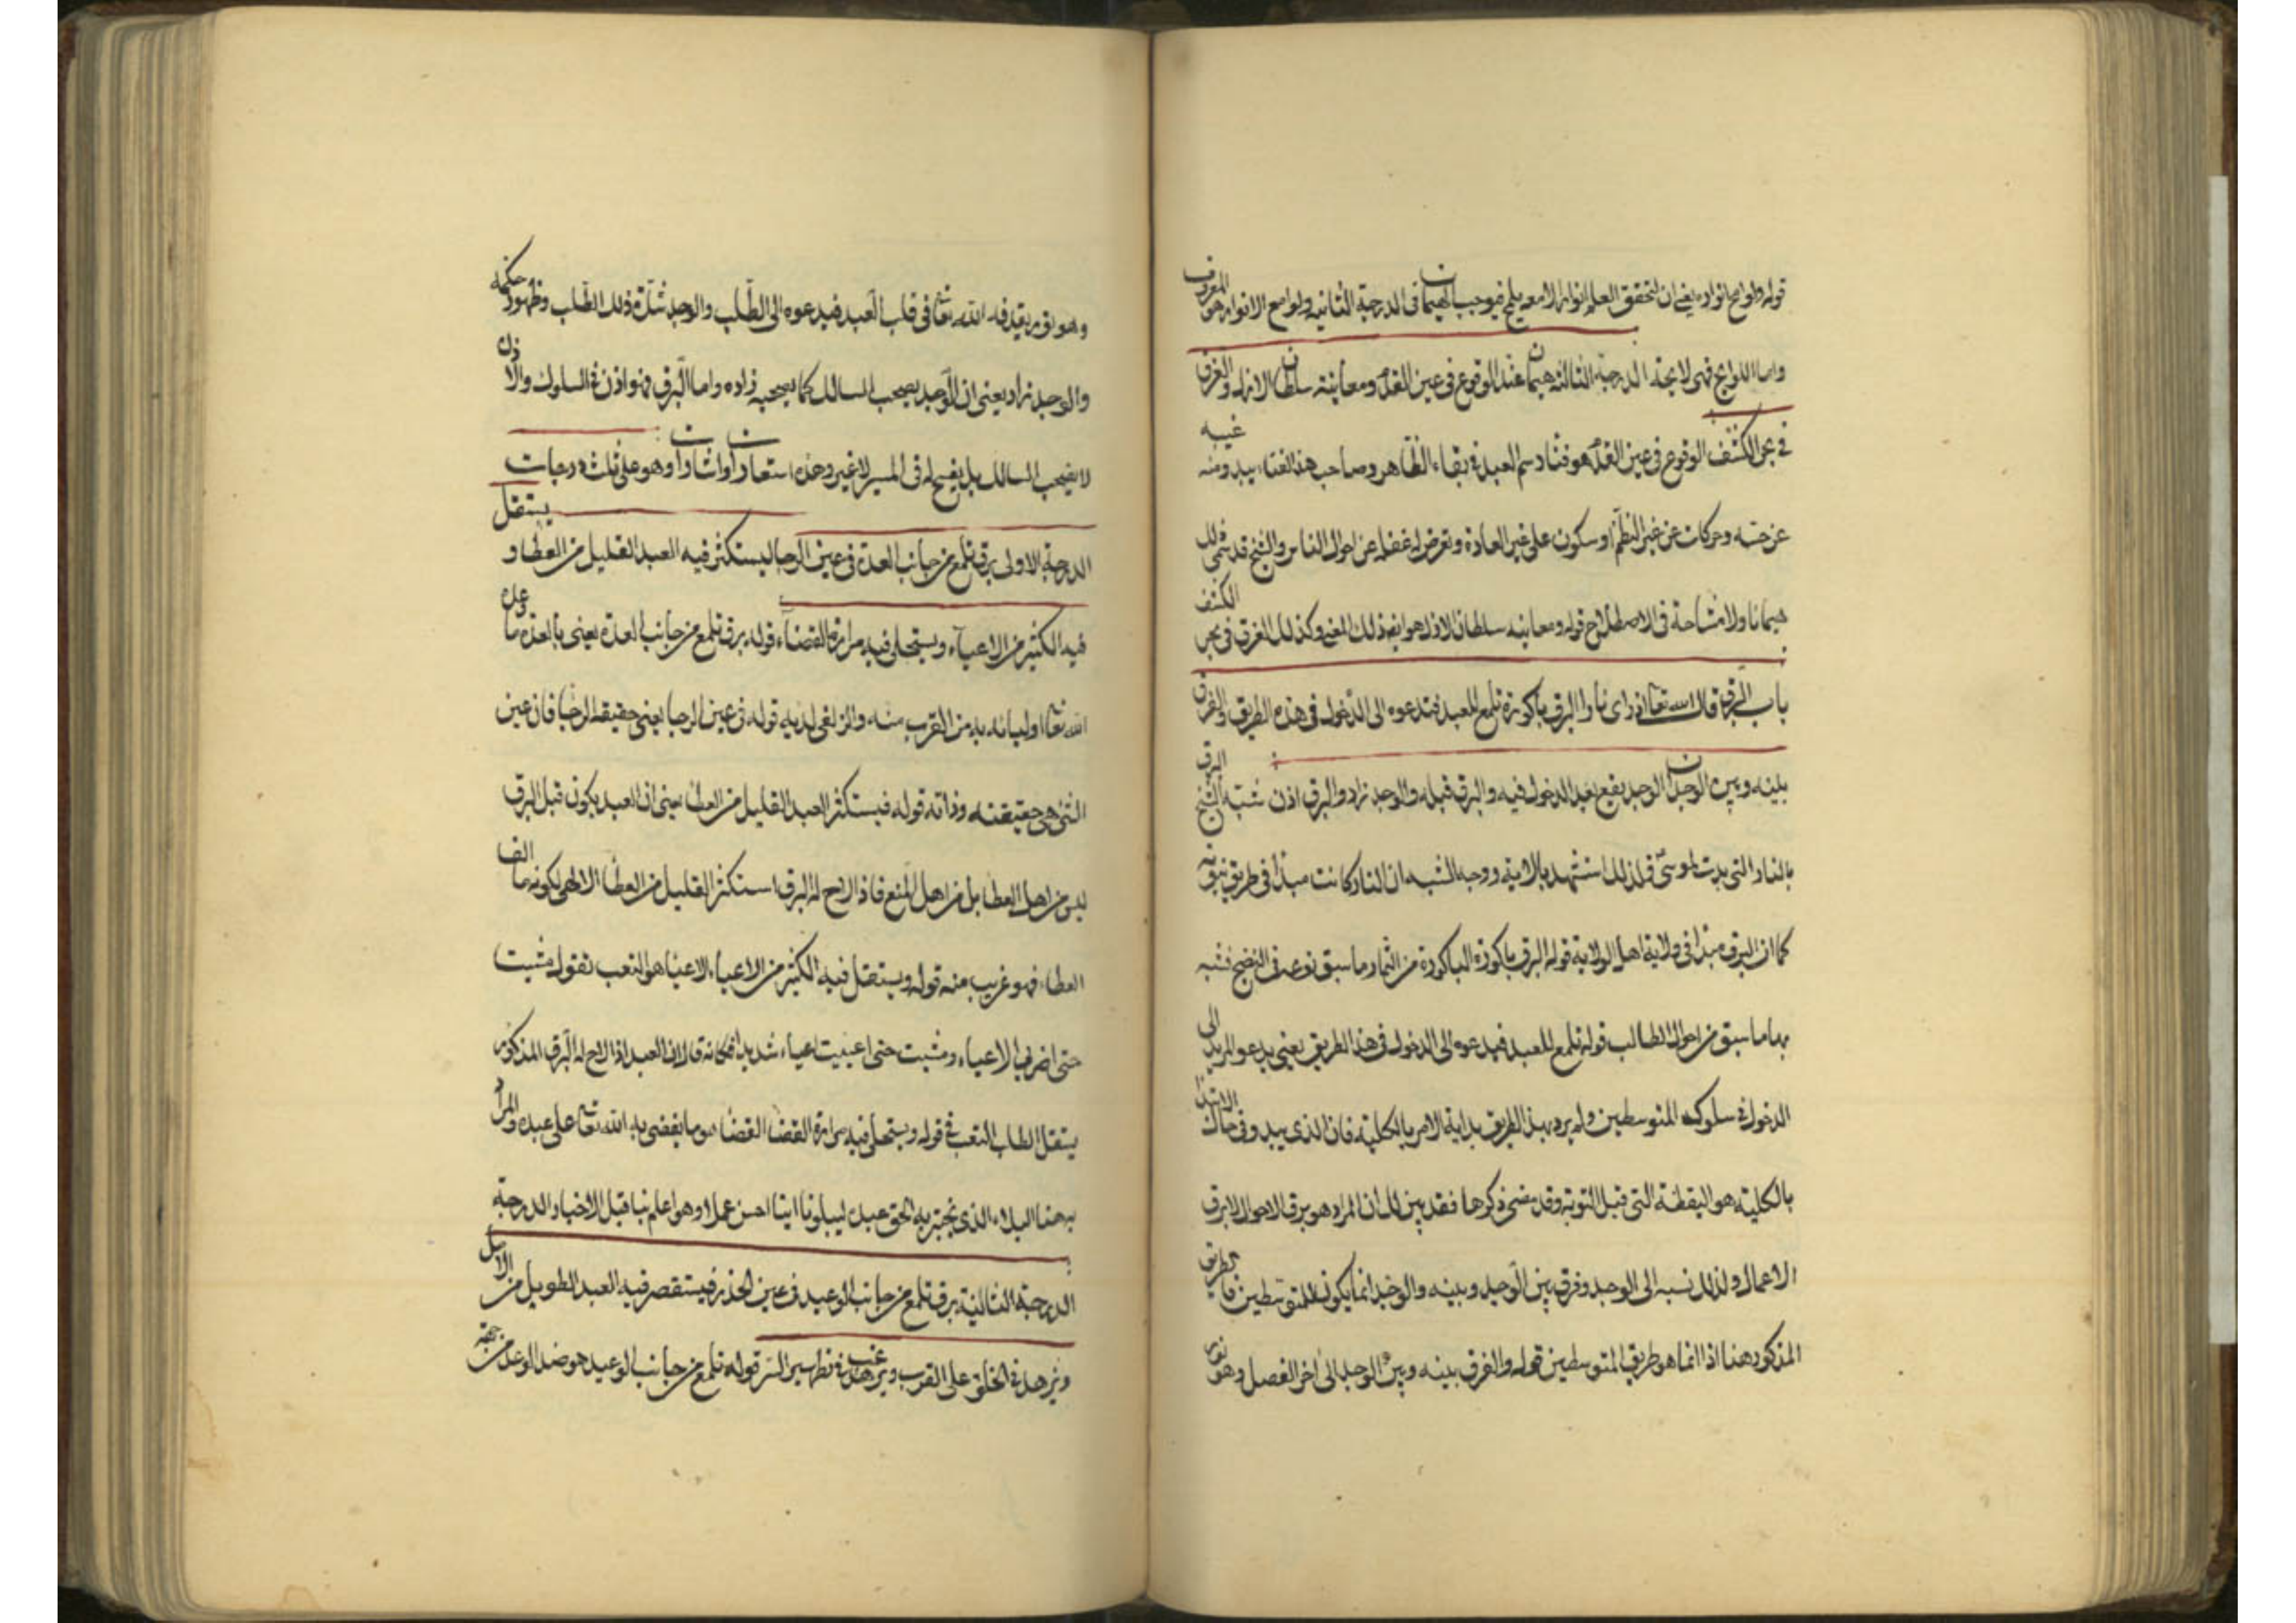 قوله ولوامع انواره يعني ان لتحقق العلم انوارا لامعه يلمع فيوجب الهيمان في الدرجة الثانيه ولوامع الانوار هو المعروف
واما اللوايح فهي لا بحد الدرجة الثالثه هيمان عند الوقوع في عين القدم ومعاينة سلطان الازل والغرق
في بحر الكشف الوقوع في عين القدم هو فناء رسم العبد في بقاء الظاهر وصاحب هذا الفناء يبدو منه غيبه
عن حسه وحركات عن غير النظم او سكون على غير العادة وتعرض له غفله عن احوال الناس والشيخ قد سمى ذلك
هيمانا ولا مشاحة في الاصطلاح قوله ومعاينه سلطان الازل هو ايضا ذلك المعنى وكذلك الغرق في بحر الكشف
باب البرق قال الله تعالى اذ راى نارا البرق باكورة تلمع للعبد فتدعوه الى الدخول في هذه الطريق والفرق
بينه وبين الوجد ان الوجد يقع بعد الدخول فيه والبرق قبله والوجد زاد والبرق اذن شبه الشيخ البرق
بالنار التي بدت لموسى فلذلك استشهد بالاية ووجه الشبه ان النار كانت مبدا في طريق نبوته
كما ان البرق مبدا في ولاية اهل الولاية قوله البرق باكورة الباكورة من الثمار ما سبق نوعه في النضج فشبه
بها ما سبق من احوال الطالب قوله تلمع للعبد فيدعوه الى الدخول في هذا الطريق يعني يدعو المريد الى
الدخول في سلوك المتوسطين ولم يرد بهذا الطريق بداية الامر بالكلية فان الذي يبدو في حال الابتدا
بالكلية هو اليقظة التي قبل التوبة وقد مضى ذكرها فقد بين لك ان المراد هو برق الاحوال لا برق
الاعمال ولذلك نسبه الى الوجد وفرق بين الوجد وبينه والوجد انما يكون للمتوسطين فالطريق
المذكور هنا اذا انما هو طريق المتوسطين قوله والفرق بينه وبين الوجد الى اخر الفصل وهو نور
وهو نور يقذفه الله تعالى في قلب العبد فيدعوه الى الطلب والوجد شدة ذلك الطلب وظهور حكمه
والوجد زاد يعني ان الوجد يصحب السالك كما يصحبه زاده واما البرق فهو اذن في السلوك والاذن
لا يصحب السالك بل يفسح له في المسير لا غير وهذه استعارات واشارات وهو على ثلث درجات
الدرجة الاولى برق تلمع من جانب العدة في عين الرجا ليستكثر فيه العبد القليل من العطا و يستقل
فيه الكثير من الاعياء ويستحلى فيه مرارة القضاء قوله برق تلمع من جانب العدة يعني بالعدة ما وعد
الله تعالى اولياءه به من القرب منه والزلفى لديه قوله في عين الرجا يعني حقيقة الرجا فان عين
الشئ هي حقيقته وذاته قوله فيستكثر العبد القليل من العطاء يعني ان العبد يكون قبل البرق
ليس من اهل العطا بل من اهل المنع فاذا لاح له البرق استكثر القليل من العطا الالهي لكونه ما الف
العطاء فهو غريب منه قوله ويستقل فيه الكثير من الاعياء الاعيا هو التعب تقول مشيت
حتى اضر بي الاعياء ومشيت حتى اعييت اعياء شديدا فكانه قال ان العبد اذا لاح له البرق المذكور
يستقل الطلب التعب في قوله ويستحلى فيه مرارة القضا القضا هو ما يقضى به الله تعالى على عبده والمراد
به هنا البلاء الذي يختبر به الحق عبده ليبلونا اينا احسن عملا وهو اعلم بنا قبل الاخبار الدرجة
الدرجة الثانية برق تلمع من جانب الوعيد في عين الحذر فيستقصر فيه العبد الطويل من الامل
ويزهد في الخلق على القرب ويرغب في تطهير السر قوله تلمع من جانب الوعيد هو ضد الوعد من جهة